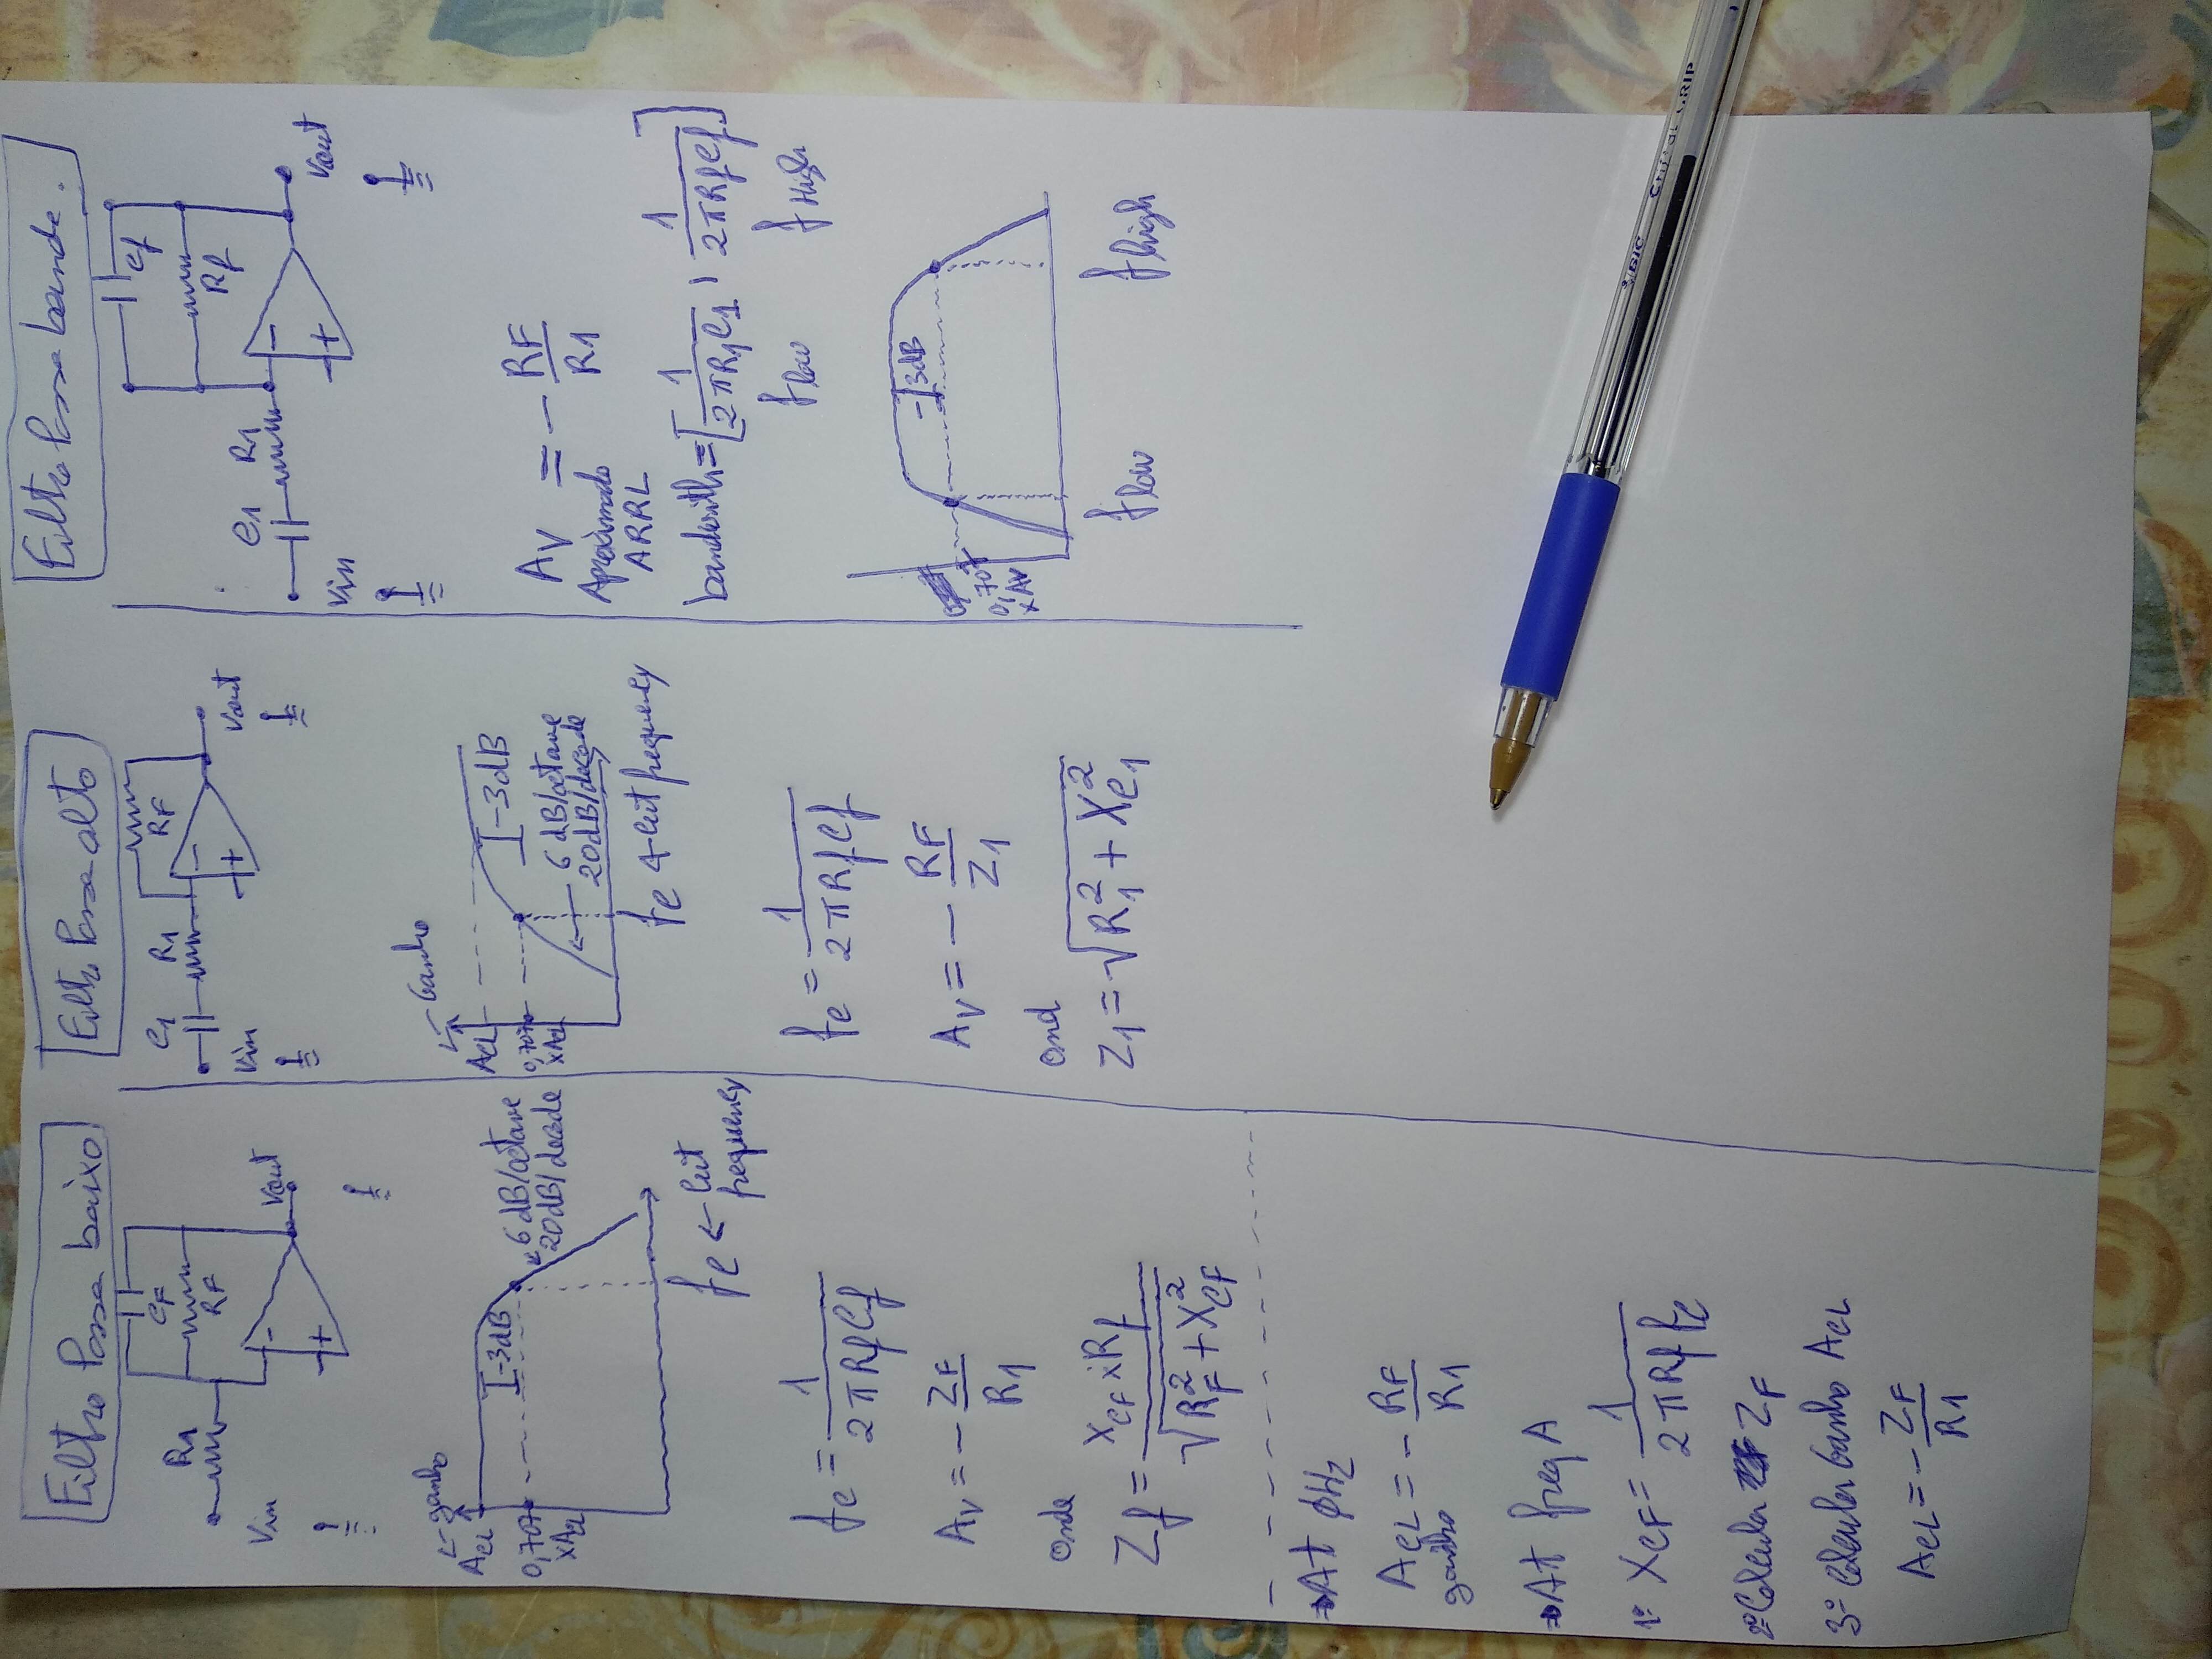 Filtro Passa baixo
CF
R1
RF
Vin
-
+
Vout
← ganho
ACL
I -3dB
0,707
xACL
6 dB/octave
20dB/decade
fc ← Cut
frequency
fc = 1 / 2πRfCf
AV = - ZF / R1
Onde
Zf = XCF x Rf / √RF² + XCF²
⇒ At ϕHz
ACL = - RF / R1
ganho
⇒ At freq A
1º XCF = 1 / 2πRf fc
2º Calcula ZF
3º Calcular Ganho ACL
ACL = - ZF / R1
Filtro Passa alto
C1
R1
RF
Vin
-
+
Vout
← Ganho
ACL
I -3dB
0,707
xACL
6 dB/octave
20dB/decade
fc ← Cut frequency
fc = 1 / 2πRfCf
AV = - RF / Z1
Ond
Z1 = √R1² + XC1²
Filtro Passa banda.
Cf
Rf
C1
R1
Vin
-
+
Vout
AV = - RF / R1
Aproximado
ARRL
bandwith = [1 / 2πR1C1 , 1 / 2πRfCf]
flow
fHigh
-I 3dB
0,707
xAV
flow
fhigh
BIC Cristal GRIP